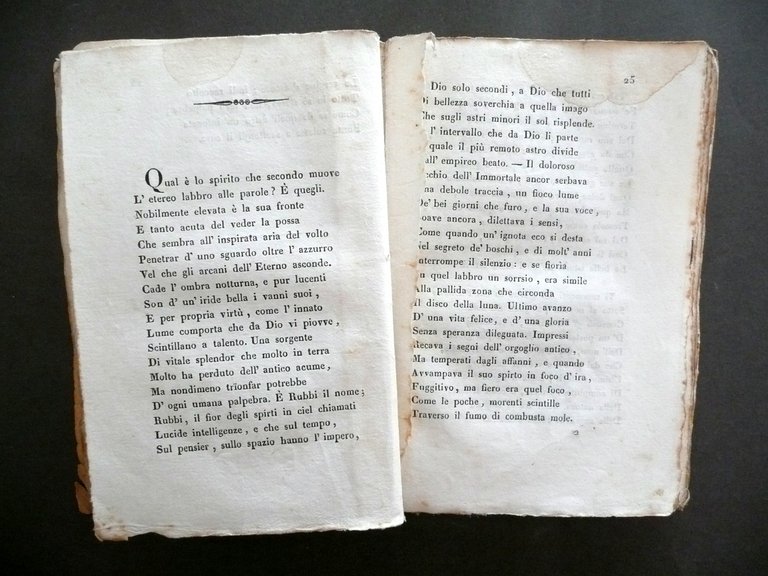 Qual è lo spirito che secondo muove
L' etereo labbro alle parole? È quegli.
Nobilmente elevata è la sua fronte
E tanto acuta del veder la possa
Che sembra all' inspirata aria del volto
Penetrar d' uno sguardo oltre l' azzurro
Vel che gli arcani dell' Eterno asconde.
Cade l' ombra notturna, e pur lucenti
Son d' un' iride bella i vanni suoi,
E per propria virtù, come l' innato
Lume comporta che da Dio vi piovve,
Scintillano a talento. Una sorgente
Di vitale splendor che molto in terra
Molto ha perduto dell' antico acume,
Ma nondimeno trïonfar potrebbe
D' ogni umana palpebra. È Rubbi il nome;
Rubbi, il fior degli spirti in ciel chiamati
Lucide intelligenze, e che sul tempo,
Sul pensier, sullo spazio hanno l' impero,
25
Dio solo secondi, a Dio che tutti
Di bellezza soverchia a quella imago
Che sugli astri minori il sol risplende.
l' intervallo che da Dio li parte
quale il più remoto astro divide
all' empireo beato. — Il doloroso
cchio dell' Immortale ancor serbava
na debole traccia, un fioco lume
De' bei giorni che furo, e la sua voce,
oave ancora, dilettava i sensi,
Come quando un' ignota eco si desta
Nel segreto de' boschi, e di molt' anni
Interrompe il silenzio: e se fiorìa
n quel labbro un sorrsio, era simile
Alla pallida zona che circonda
Il disco della luna. Ultimo avanzo
D' una vita felice, e d' una gloria
Senza speranza dileguata. Impressi
Recava i segni dell' orgoglio antico,
Ma temperati dagli affanni, e quando
Avvampava il suo spirto in foco d' ira,
Fuggitivo, ma fiero era quel foco,
Come le poche, morenti scintille
Traverso il fumo di combusta mole.